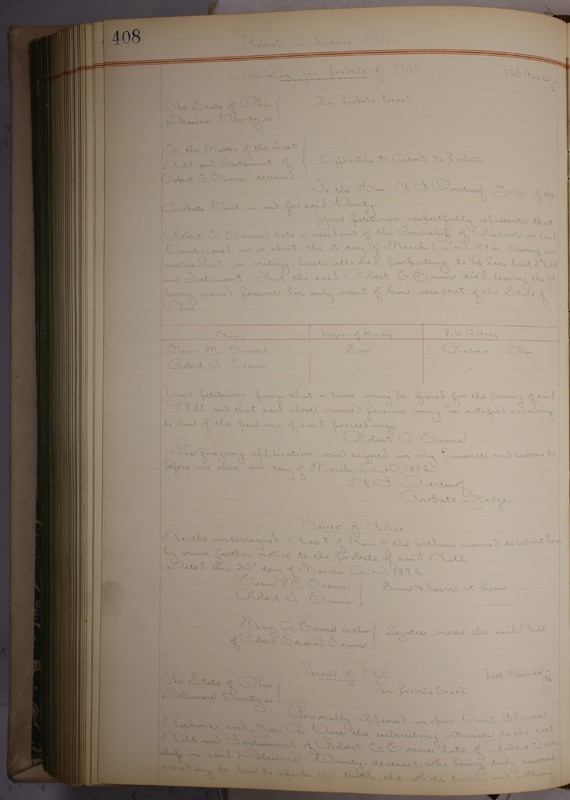 408
Robert E. Evans Will
Application for Probate of Will
Filed March
The State of Ohio
In Probate Court
Delaware County ss
In the Matter of the Last
Will and Testament of
Application to Admit to Probate
Robert E. Evans deceased
To the Hon. Judge of the
Probate Court in and for said County.
Your Petitioner respectfully represents that
Robert E. Evans late a resident of the Township of Radnor in said
County, died on or about the day of March A.D. 1892 leaving an
instrument in writing, herewith attached, purporting to be his last Will
and Testament. That the said Robert E. Evans died leaving the fol
lowing named persons his only next of kin resident of the State of
Ohio
Name
Degree of Kinship
P.O. Address
Evan M. Evans
Sons
Radnor Ohio
Robert J. Evans
Your Petitioner prays that a time may be fixed for the proving of said
Will and that said above named persons may be notified according
to law of the pendency of said proceedings
Robert J. Evans
The foregoing application was signed in my presence and sworn to
before me this day of March A.D. 1892
Probate Judge.
Waiver of Notice
We, the undersigned Next of Kin of the within named decedent here
by waive further notice to the Probate of said Will
Dated this day of March A.D. 1892
Evan M. Evans
Sons & heirs at Law
Robert J. Evans
Mary A. Evans mother
Legatee under the said Will
of Robert Edward Evans
Probate of Will
Filed March
The State of Ohio
In Probate Court
Delaware County ss
Personally appeared in open Court Thomas
and the subscribing witnesses to the last
Will and Testament of Robert E. Evans late of Radnor Town
ship in said Delaware County, deceased, who being duly sworn
according to law to speak the truth, the whole truth, and nothing